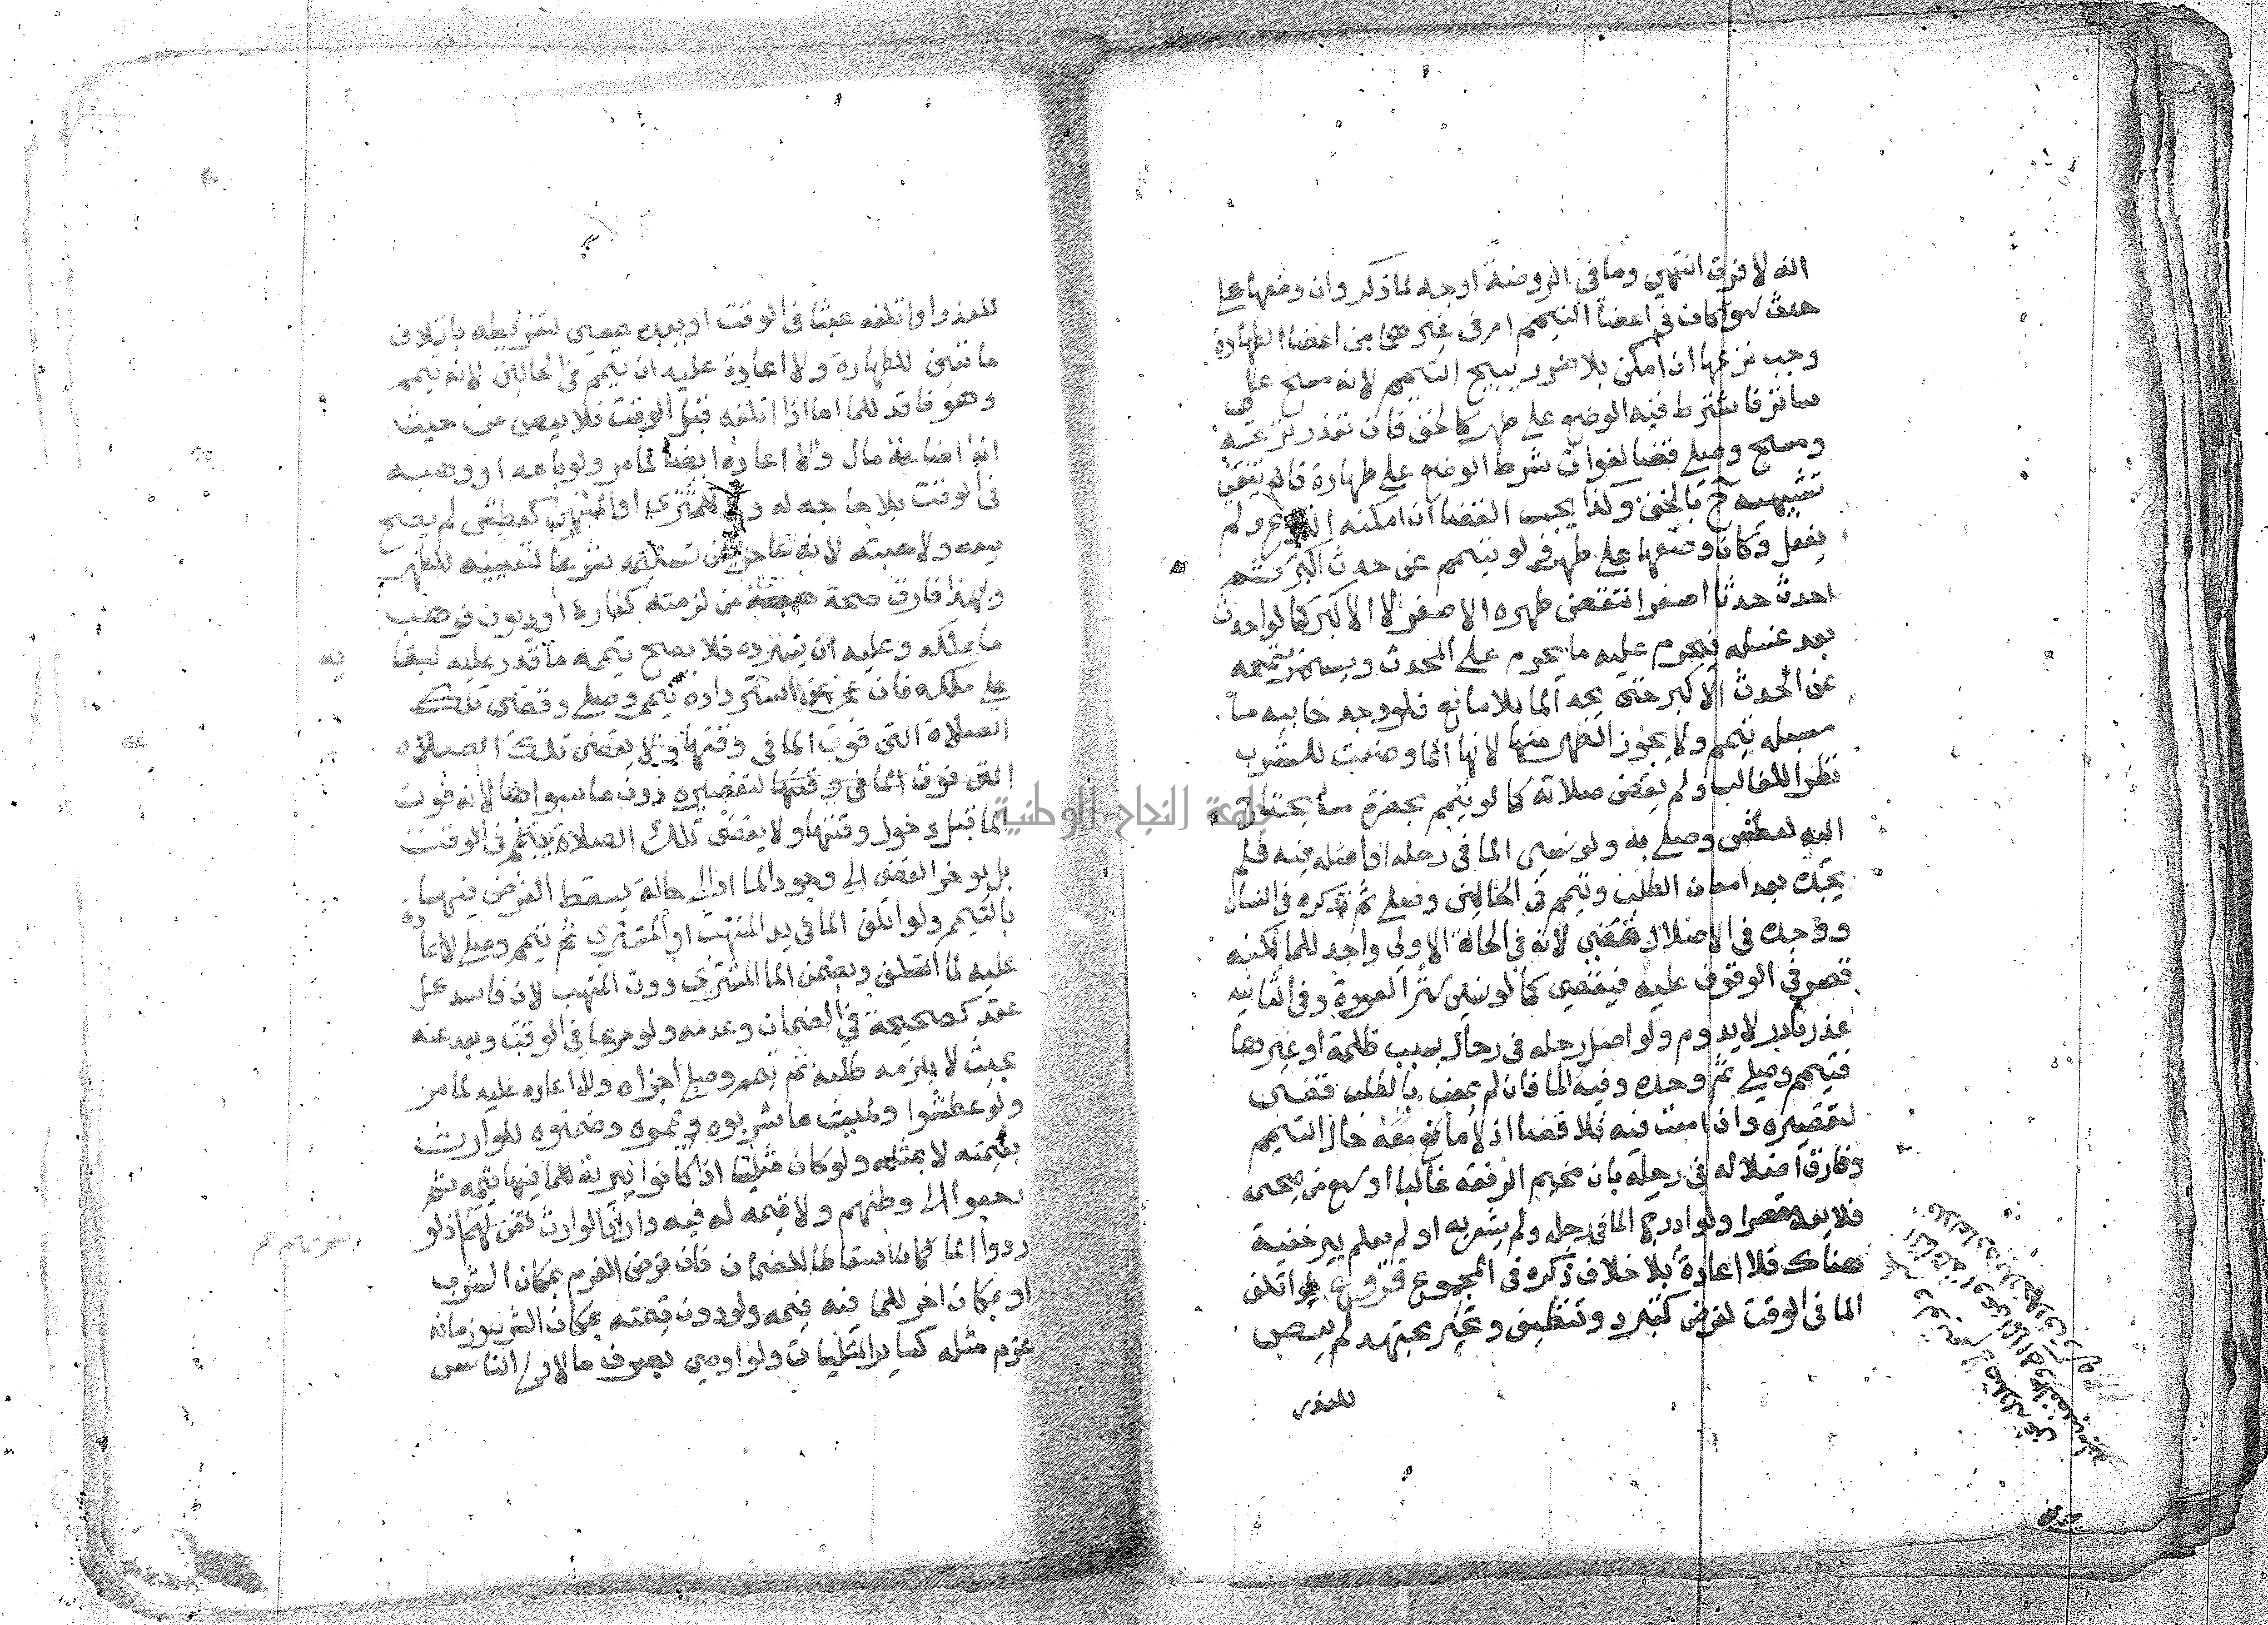 انه لا فرق انتهي وما في الروضة اوجه لما ذكر وان وضعها علي
حدث سوا كان في اعضا التيمم ام في غيرها من اعضا الطهارة
وجب نزعها ان امكن بلا ضرر يبيح التيمم لانه مسح علي
ساتر فاشترط فيه الوضع علي طهر كالخف فان تعذر نزعه
ومسح وصلي قضا لفوات شرط الوضع علي طهارة فانتفي
تشبيهه ح بالخف وكذا يجب القضا ان امكنه النزع ولم
يفعل وكان وضعها علي طهر ولو تيمم عن حدث اكبر ثم
احدث حدثا اصغر انتقض طهره الاصغر لا الاكبر كما لو احدث
بعد غسله فيحرم عليه ما يحرم علي المحدث ويستمر تيممه
عن الحدث الاكبر حتي يجد الما بلا مانع فلو وجد خابية ما
مسبله تيمم ولا يجوز الطهر منها لانها انما وضعت للشرب
نظرا للغالب ولم يقض صلاته كما لو تيمم بحضرة ما يحتاج
اليه لعطش وصلي به ولو نسي الما في رحله او اضله فيه فلم
يجده بعد امعان الطلب وتيمم في الحالين وصلي ثم تذكره في النسيان
ووجده في الاضلال قضي لانه في الحالة الاولي واجد للما لكنه
قصر في الوقوف عليه فيقضي كما لو نسي ستر العورة وفي الثانيه
عذر نادر لا يدوم ولو اضل رحله في رحال بسبب ظلمة او غيرها
فتيمم وصلي ثم وجده وفيه الما فان لم يمعن بالطلب قضي
لتقصيره وان امعن فيه فلا قضا اذ لا ما مع معه حال التيمم
وفارق اضلاله في رحله بان مخيم الرفقة غالبا اوسع من مخيمه
فلا يعد مقصرا ولو ادرج الما في رحله ولم يشعر به او لم يعلم ببير خفية
هناك فلا اعادة بلا خلاف ذكره في المجموع فروع لو اتلف
الما في الوقت لغرض كتبرد وتنظيف وتحير مجتهد لم يعص
للعذر
للعذر او اتلفه عبثا في الوقت او بعده عصي لتفريطه باتلاف
ما تعين للطهارة ولا اعادة عليه ان تيمم في الحالين لانه تيمم
وهو فاقد للما اما اذا اتلفه قبل الوقت فلا يعص من حيث
انه اضاعة مال ولا اعادة ايضا لما مر ولو باعه او وهبه
في الوقت بلا حاجه له ولا للمشتري او المتهب كعطش لم يصح
بيعه ولا هبته لانه عاجز عن تسليمه شرعا لتعيينه للطهر
وبهذا فارق صحة هبة من لزمته كفارة او ديون فوهب
ما يملكه وعليه ان يسترده فلا يصح تيممه ما قدر عليه لبقا
علي ملكه فان عجز عن استرداده تيمم وصلي وقضي تلك
الصلاة التي فوت الما في وقتها ولا يقضي تلك الصلاه
التي فوت الما في وقتها لتقصيره دون ما سواها لانه فوت
الما قبل دخول وقتها ولا يقضي تلك الصلاة بتيمم في الوقت
بل يوخر القضي الي وجود الما او الي حالة يسقط الفرض فيها
بالتيمم ولو اتلف الما في يد المتهب او المشتري ثم تيمم وصلي لا اعادة
عليه لما سلف ويضمن الما المشتري دون المتهب لان فاسد كل
عقد كصحيحه في الضمان وعدمه ولو مر بما في الوقت وبعد عنه
بحيث لا يلزمه طلبه ثم تيمم وصلي اجزاه ولا اعاده عليه لما مر
ولو عطشوا ولميت ما شربوه ويمموه وضمنوه للوارث
بقيمته لا بمثله ولو كان مثليا اذا كانوا ببرية للما فيها قيمه ثم
رجعوا الي وطنهم ولا قيمه له فيه واراد الوارث تغريمهم اذ لو
ردوا الما لكان اسقاطا للضمان فان فرض الغرم بمكان الشرب
او بمكان اخر للما فيه قيمه ولو دون قيمته بمكان الشرب وزمانه
غرم مثله كساير المثليات ولو اوصي بصرف ما لاولي الناس
جامعة النجاح الوطنية